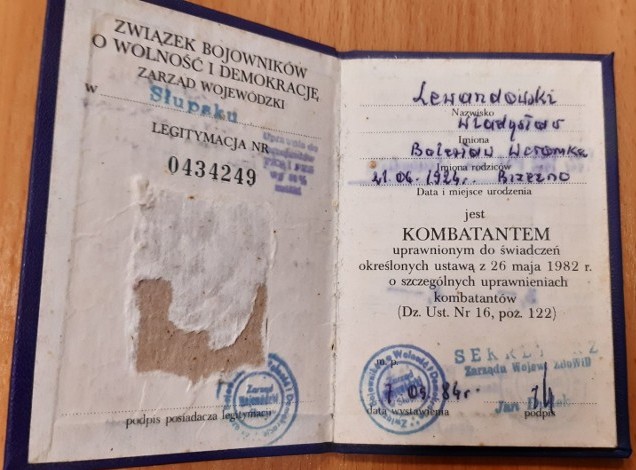 ZWIĄZEK BOJOWNIKÓW
O WOLNOŚĆ I DEMOKRACJĘ
ZARZĄD WOJEWÓDZKI
w Słupsku
LEGITYMACJA NR
0434249
podpis posiadacza legitymacji
Zarząd
Wojewódzki
Lewandowski
Nazwisko
Władysław
Imiona
Bolesław Weronika
Imiona rodziców
06. 1924r. Brzezno
Data i miejsce urodzenia
jest
KOMBATANTEM
uprawnionym do świadczeń
określonych ustawą z 26 maja 1982 r.
o szczególnych uprawnieniach
kombatantów
(Dz. Ust. Nr 16, poz. 122)
m.p.
84r.
data wystawienia
SEKRETARZ
Zarządu Wojew. ZBoWiD
Jan
podpis